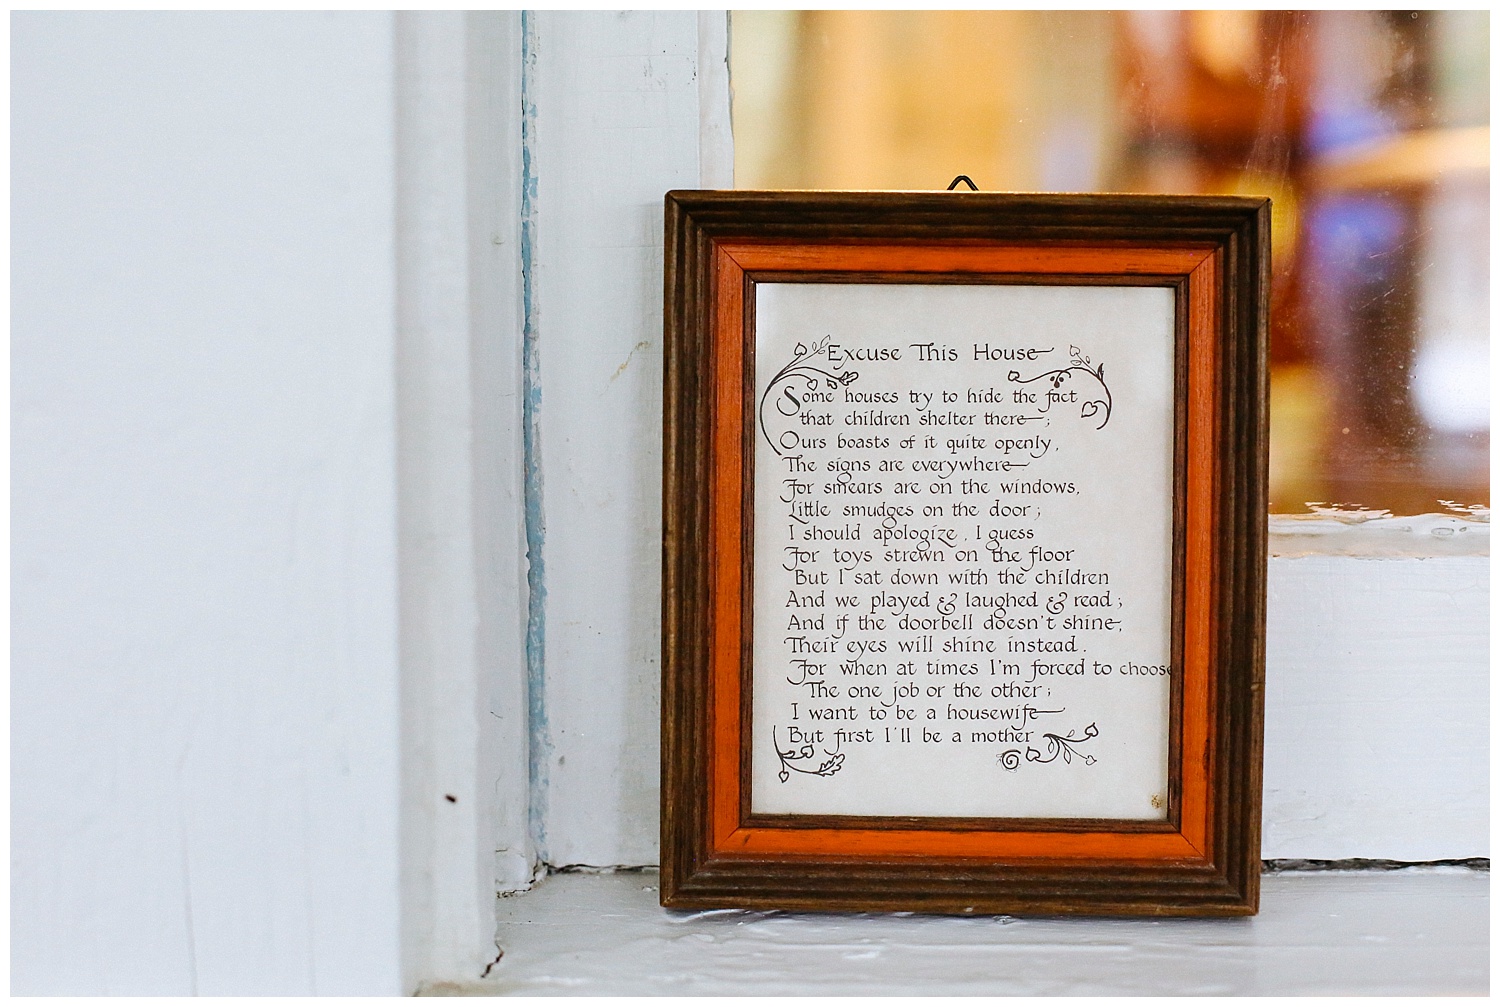 Excuse This House
Some houses try to hide the fact
that children shelter there;
Ours boasts of it quite openly,
The signs are everywhere
For smears are on the windows,
Little smudges on the door;
I should apologize, I guess
For toys strewn on the floor
But I sat down with the children
And we played & laughed & read;
And if the doorbell doesn't shine,
Their eyes will shine instead.
For when at times I'm forced to choose
The one job or the other;
I want to be a housewife
But first I'll be a mother